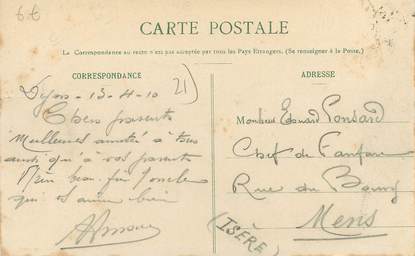 6€
CARTE POSTALE
La Correspondance au recto n'est pas acceptée par tous les Pays Etrangers. (Se renseigner à la Poste.)
CORRESPONDANCE
21
Dijon - 13-4-10
Chers parents
Meilleures amitiés à tous
ainsi qu'à vos parents
qui aime bien
ADRESSE
Monsieur Edouard Ponsard
Chef de Fanfare
Rue du Bourg
Mens
(ISÈRE)